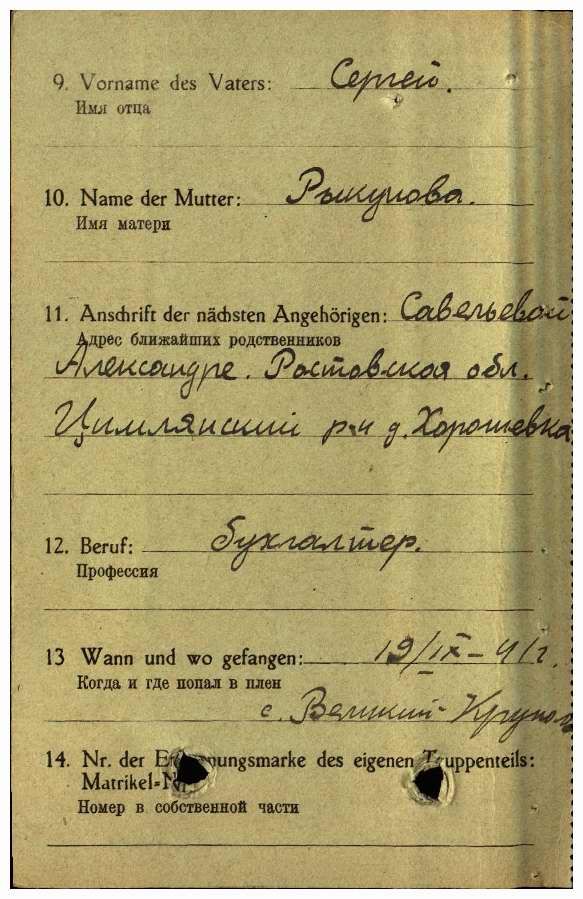 9. Vorname des Vaters: Сергей.
Имя отца
10. Name der Mutter: Рыкунова.
Имя матери
11. Anschrift der nächsten Angehörigen: Савельевой
Адрес ближайших родственников
Александре. Ростовская обл.
Цимлянский р-н д. Хорошевка
12. Beruf: бухгалтер.
Профессия
13 Wann und wo gefangen: 19/IX-41г.
Когда и где попал в плен
с. Великий-
14. Nr. der des eigenen Truppenteils:
Matrikel-Nr
Номер в собственной части